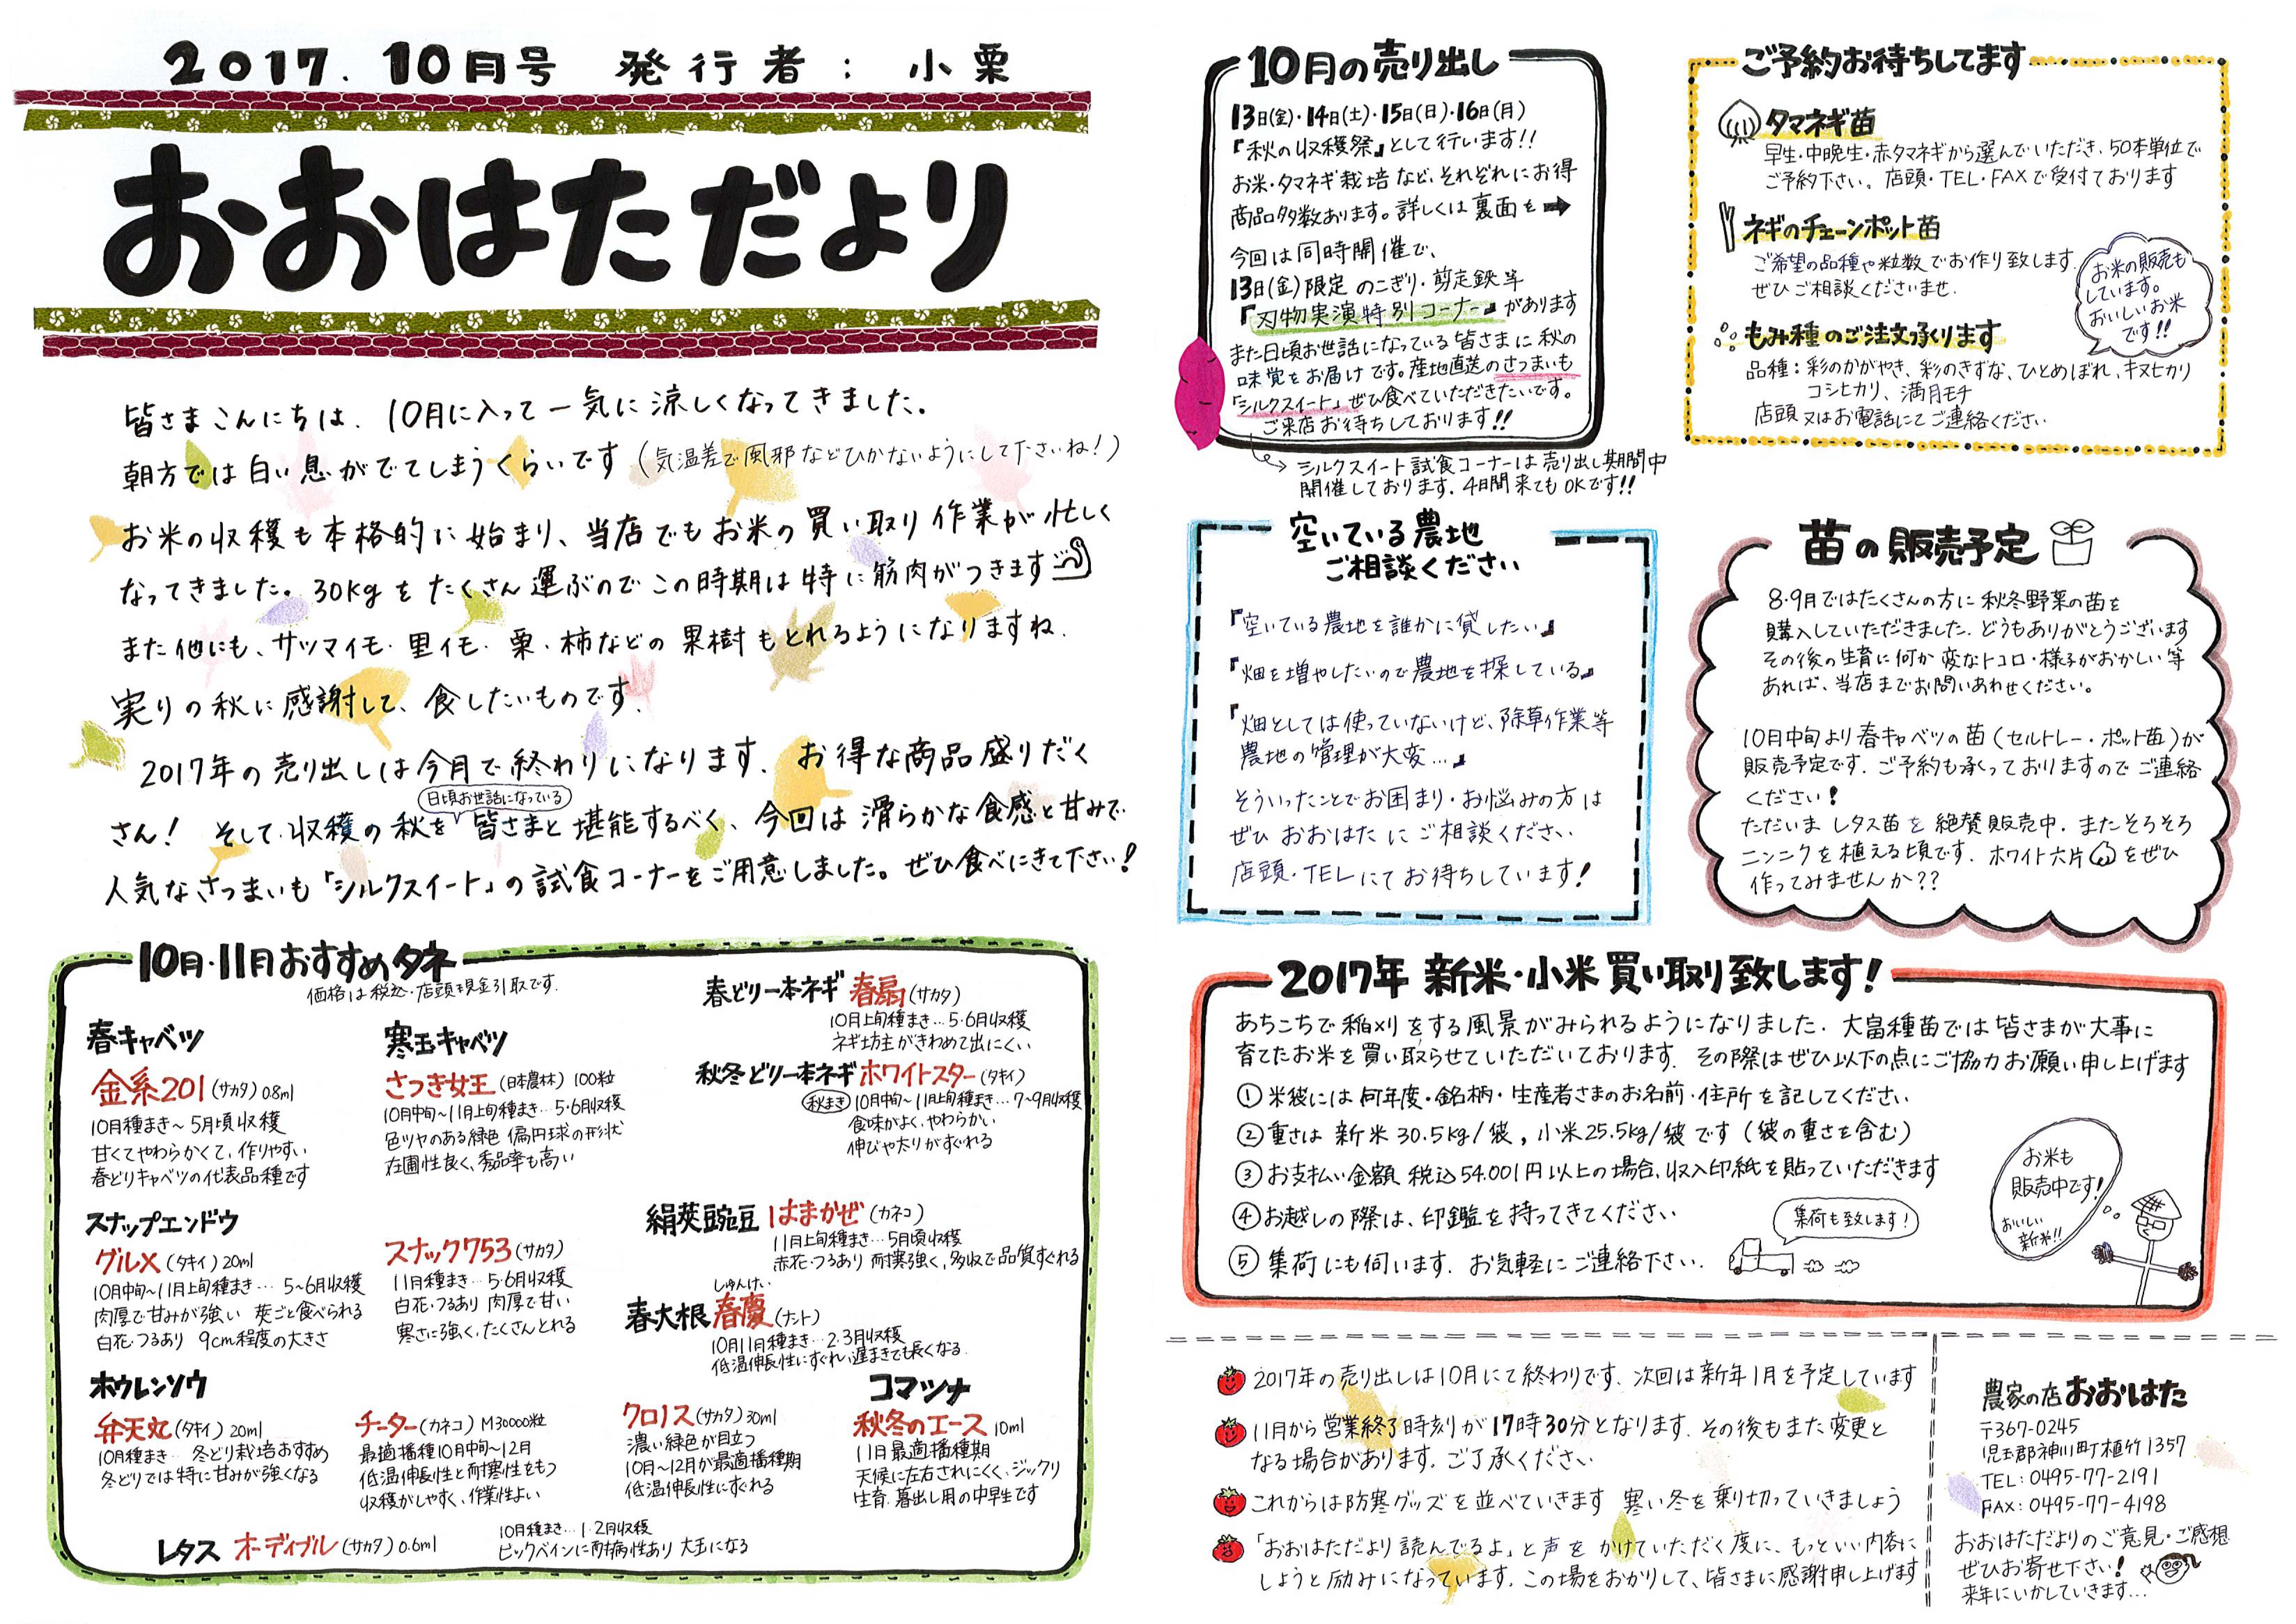 2017.10月号 発行者: 小栗
おおはただより
皆さまこんにちは、10月に入って一気に涼しくなってきました。
朝方では白い息がでてしまうくらいです(気温差で風邪などひかないようにして下さいね!)
お米の収穫も本格的に始まり、当店でもお米の買い取り作業が忙しく
なってきました。30kgをたくさん運ぶのでこの時期は特に筋肉がつきます
また他にも、サツマイモ・里イモ・栗・柿などの果樹もとれるようになりますね.
実りの秋に感謝して、食したいものです.
2017年の売り出しは今月で終わりになります. お得な商品盛りだく
さん! そして収穫の秋を日頃お世話になっている皆さまと堪能するべく、今回は滑らかな食感と甘みで
人気なさつまいも「シルクスイート」の試食コーナーをご用意しました。ぜひ食べにきて下さい!
10月・11月おすすめタネ
価格は税込・店頭現金引取です.
春キャベツ
金系201(サカタ)0.8ml
10月種まき〜5月頃収穫
甘くてやわらかくて、作りやすい
春どりキャベツの代表品種です
寒玉キャベツ
さつき女王(日本農林)100粒
10月中旬〜11月上旬種まき…5・6月収穫
色ツヤのある緑色 偏円球の形状
在圃性良く、秀品率も高い
春どり一本ネギ 春扇(サカタ)
10月上旬種まき…5・6月収穫
ネギ坊主がきわめて出にくい
秋冬どり一本ネギ ホワイトスター(タキイ)
秋まき 10月中旬〜11月上旬種まき…7〜9月収穫
食味がよく、やわらかい
伸びや太りがすぐれる
スナップエンドウ
グルメ(タキイ)20ml
10月中旬〜11月上旬種まき… 5〜6月収穫
肉厚で甘みが強い 莢ごと食べられる
白花・つるあり 9cm程度の大きさ
スナック753(サカタ)
11月種まき…5・6月収穫
白花・つるあり 肉厚で甘い
寒さに強く、たくさんとれる
絹莢豌豆 はまかぜ(カネコ)
11月上旬種まき…5月頃収穫
赤花・つるあり 耐寒強く、多収で品質すぐれる
しゅんけい
春大根 春慶(ナント)
10月11日種まき…2・3月収穫
低温伸長性にすぐれ、遅まきでも長くなる.
ホウレンソウ
弁天丸(タキイ)20ml
10月種まき… 冬どり栽培おすすめ
冬どりでは特に甘みが強くなる
チーター(カネコ)M30000粒
最適播種10月中旬〜12月
低温伸長性と耐寒性をもつ
収穫がしやすく、作業性よい
クロノス(サカタ)30ml
濃い緑色が目立つ
10月〜12月が最適播種期
低温伸長性にすぐれる
コマツナ
秋冬のエース 10ml
11月最適播種期
天候に左右されにくく、ジックリ
生育.暮出し用の中早生です
レタス オーディブル(サカタ)0.6ml
10月種まき…1・2月収穫
ビックベインに耐病性あり 大玉になる
10月の売り出し
13日(金)・14日(土)・15日(日)・16日(月)
『秋の収穫祭』として行います!!
お米・タマネギ栽培など、それぞれにお得
商品多数あります。詳しくは裏面を➡
今回は同時開催で、
13日(金)限定 のこぎり・剪定鋏等
『刃物実演特別コーナー』があります
また日頃お世話になっている皆さまに秋の
味覚をお届けです。産地直送のさつまいも
「シルクスイート」ぜひ食べていただきたいです。
ご来店お待ちしております!!
シルクスイート試食コーナーは売り出し期間中
開催しております. 4日間来てもOKです!!
ご予約お待ちしてます
タマネギ苗
早生・中晩生・赤タマネギから選んでいただき、50本単位で
ご予約下さい。店頭・TEL・FAXで受付ております
ネギのチェーンポット苗
ご希望の品種や粒数でお作り致します.
ぜひご相談くださいませ.
お米の販売も
しています。
おいしいお米
です!!
もみ種のご注文承ります
品種:彩のかがやき、彩のきずな、ひとめぼれ、キヌヒカリ
コシヒカリ、満月モチ
店頭又はお電話にてご連絡ください
空いている農地
ご相談ください
『空いている農地を誰かに貸したい』
『畑を増やしたいので農地を探している』
『畑としては使っていないけど、除草作業等
農地の管理が大変…』
そういったことでお困まり・お悩みの方は
ぜひ おおはた にご相談ください.
店頭・TELにてお待ちしています!
苗の販売予定
8・9月ではたくさんの方に秋冬野菜の苗を
購入していただきました. どうもありがとうございます
その後の生育に何か変なトコロ・様子がおかしい等
あれば、当店までお問いあわせください。
10月中旬より春キャベツの苗(セルトレー・ポット苗)が
販売予定です. ご予約も承っておりますのでご連絡
ください!
ただいまレタス苗を絶賛販売中. またそろそろ
ニンニクを植える頃です. ホワイト六片をぜひ
作ってみませんか??
2017年 新米・小米買い取り致します!
あちこちで稲メリをする風景がみられるようになりました. 大畠種苗では皆さまが大事に
育てたお米を買い取らせていただいております. その際はぜひ以下の点にご協力お願い申し上げます
①米袋には何年度・銘柄・生産者さまのお名前・住所を記してください
②重さは 新米30.5kg/袋, 小米25.5kg/袋です(袋の重さを含む)
③お支払い金額 税込54.001円以上の場合、収入印紙を貼っていただきます
④お越しの際は、印鑑を持ってきてください
⑤集荷にも伺います. お気軽にご連絡下さい.
集荷も致します!
お米も
販売中です!
おいしい
新米!!
2017年の売り出しは10月にて終わりです. 次回は新年1月を予定しています
11月から営業終了時刻が17時30分となります. その後もまた変更と
なる場合があります. ご了承ください
これからは防寒グッズを並べていきます 寒い冬を乗り切っていきましょう
「おおはただより読んでるよ」と声をかけていただく度に、もっといい内容に
しようと励みになっています. この場をおかりして、皆さまに感謝申し上げます
農家の店おおはた
〒367-0245
児玉郡神川町植竹1357
TEL:0495-77-2191
FAX:0495-77-4198
おおはただよりのご意見・ご感想
ぜひお寄せ下さい!
来年にいかしていきます…